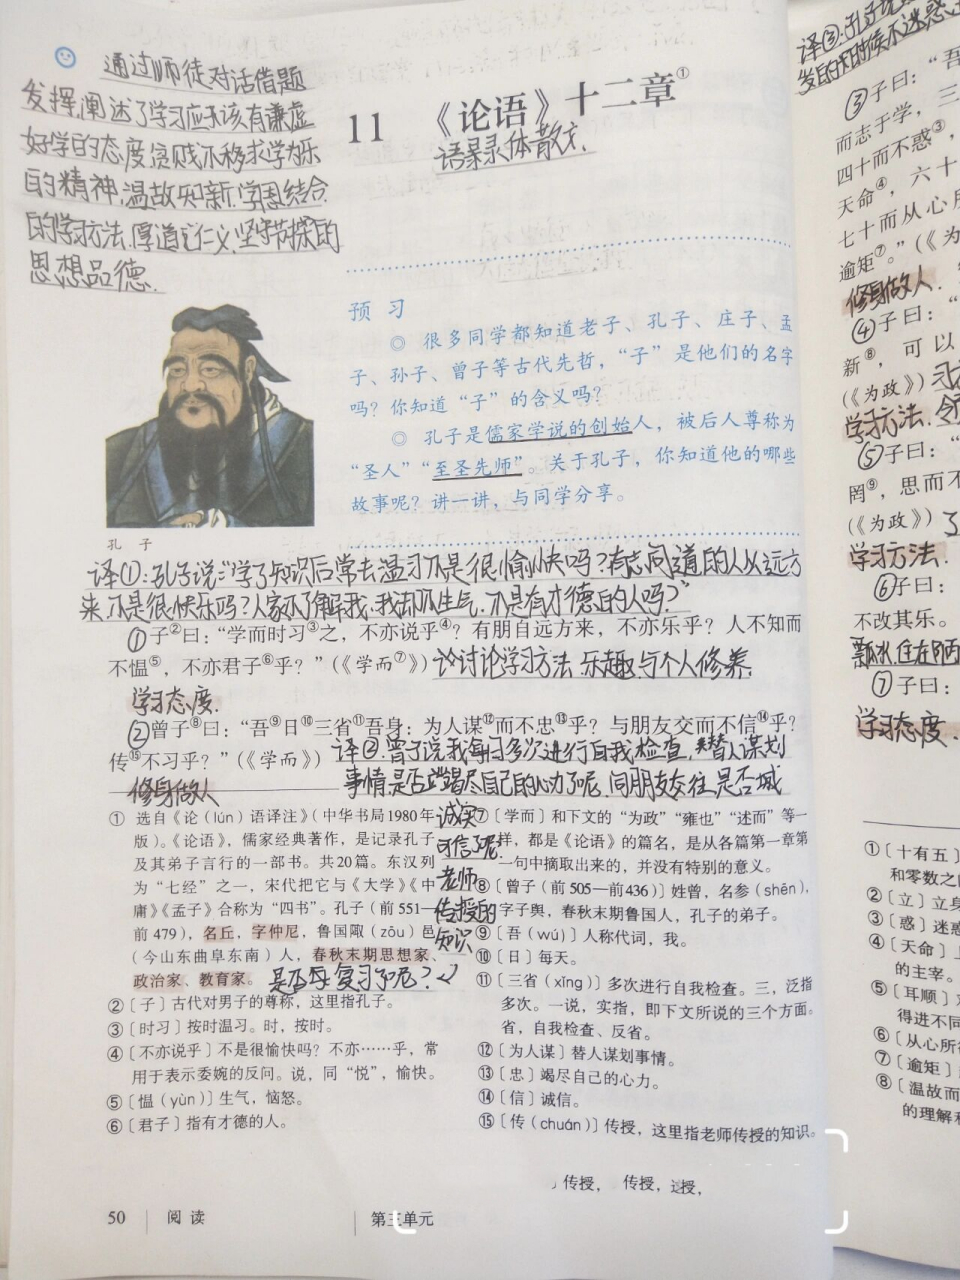 通过师徒对话借题
发挥,阐述了学习应该有谦虚
好学的态度,贫贱不移求学为乐
的精神,温故知新,学思结合
的学习方法,厚道仁义,坚守节操的
思想品德.
11 《论语》十二章①
语录体散文.
预 习
◎ 很多同学都知道老子、孔子、庄子、孟
子、孙子、曾子等古代先哲,“子”是他们的名字
吗?你知道“子”的含义吗?
◎ 孔子是儒家学说的创始人,被后人尊称为
“圣人”“至圣先师”。关于孔子,你知道他的哪些
故事呢?讲一讲,与同学分享。
孔 子
译①:孔子说:“学了知识后常去温习不是很愉快吗?有志同道的人从远方
来,不是很快乐吗?人家不了解我,我却不生气,不是有才德的人吗?”
①子②曰:“学而时习③之,不亦说乎④?有朋自远方来,不亦乐乎?人不知而
不愠⑤,不亦君子⑥乎?”(《学而⑦》)论讨论学习方法,乐趣,与个人修养.
学习态度.
②曾子⑧曰:“吾⑨日⑩三省⑪吾身:为人谋⑫而不忠⑬乎?与朋友交而不信⑭乎?
传⑮不习乎?”(《学而》)
译②曾子说我每日多次进行自我检查,替人谋划
修身做人
事情,是否竭尽自己的心力了呢,同朋友交往是否诚
诚实
可信了呢,
老师
传授的
知识
是否 复习了呢?
① 选自《论(lún)语译注》(中华书局1980年
版)。《论语》,儒家经典著作,是记录孔子
及其弟子言行的一部书。共20篇。东汉列
为“七经”之一,宋代把它与《大学》《中
庸》《孟子》合称为“四书”。孔子(前551—
前479),名丘,字仲尼,鲁国陬(zōu)邑
(今山东曲阜东南)人,春秋末期思想家、
政治家、教育家。
②〔子〕古代对男子的尊称,这里指孔子。
③〔时习〕按时温习。时,按时。
④〔不亦说乎〕不是很愉快吗?不亦……乎,常
用于表示委婉的反问。说,同“悦”,愉快。
⑤〔愠(yùn)〕生气,恼怒。
⑥〔君子〕指有才德的人。
⑦〔学而〕和下文的“为政”“雍也”“述而”等一
样,都是《论语》的篇名,是从各篇第一章第
一句中摘取出来的,并没有特别的意义。
⑧〔曾子(前505—前436)〕姓曾,名参(shēn),
字子舆,春秋末期鲁国人,孔子的弟子。
⑨〔吾(wú)〕人称代词,我。
⑩〔日〕每天。
⑪〔三省(xǐng)〕多次进行自我检查。三,泛指
多次。一说,实指,即下文所说的三个方面。
省,自我检查、反省。
⑫〔为人谋〕替人谋划事情。
⑬〔忠〕竭尽自己的心力。
⑭〔信〕诚信。
⑮〔传(chuán)〕传授,这里指老师传授的知识。
传授, 传授,
50 阅 读 第三单元
译③:孔子说
发的时候不迷惑
③子曰:“吾
而志于学,三
四十而不惑③,
天命④,六十
七十而从心所
逾矩⑦。”(《为
修身做人.
④子曰:“
新⑧,可以
(《为政》)
学习方法.
⑤子曰:“
罔⑨,思而不
(《为政》)
学习方法.
⑥子曰:
不改其乐。
⑦子曰:
学习态度.
①〔十有五〕
和零数之
②〔立〕立身
③〔惑〕迷惑
④〔天命〕
的主宰。
⑤〔耳顺〕
得进不同
⑥〔从心所
⑦〔逾矩〕
⑧〔温故而
的理解和